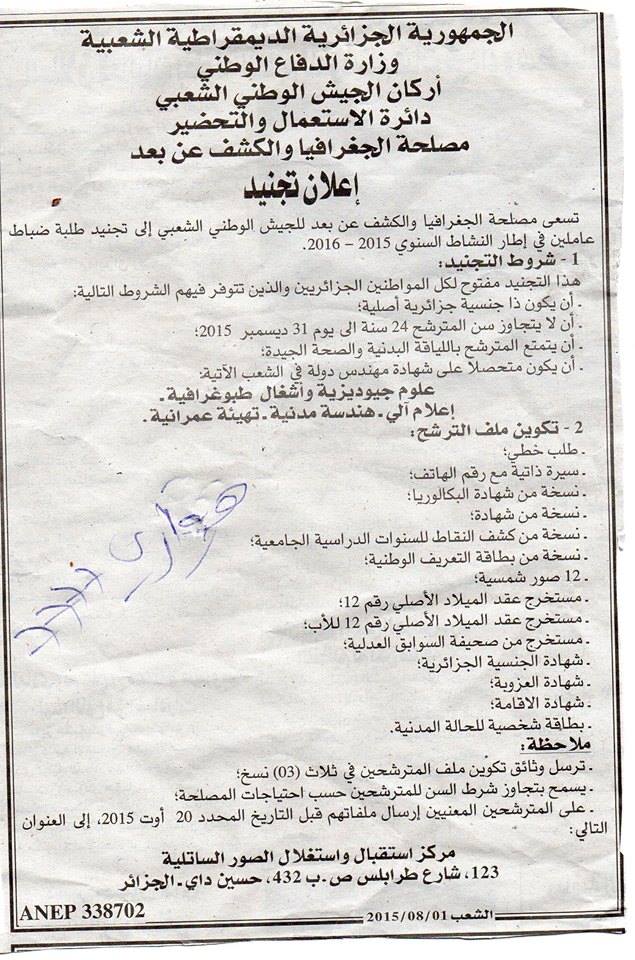 الجمهورية الجزائرية الديمقراطية الشعبية
وزارة الدفاع الوطني
أركان الجيش الوطني الشعبي
دائرة الاستعمال والتحضير
مصلحة الجغرافيا والكشف عن بعد
إعلان تجنيد
تسعى مصلحة الجغرافيا والكشف عن بعد للجيش الوطني الشعبي إلى تجنيد طلبة ضباط
عاملين في إطار النشاط السنوي 2015 – 2016.
1 - شروط التجنيد:
هذا التجنيد مفتوح لكل المواطنين الجزائريين والذين تتوفر فيهم الشروط التالية:
- أن يكون ذا جنسية جزائرية أصلية؛
- أن لا يتجاوز سن المترشح 24 سنة الى يوم 31 ديسمبر 2015؛
- أن يتمتع المترشح باللياقة البدنية والصحة الجيدة؛
- أن يكون متحصلا على شهادة مهندس دولة في الشعب الآتية:
علوم جيوديزية وأشغال طبوغرافية -
إعلام آلي - هندسة مدنية - تهيئة عمرانية -
2 - تكوين ملف الترشح:
- طلب خطي؛
- سيرة ذاتية مع رقم الهاتف؛
- نسخة من شهادة البكالوريا؛
- نسخة من شهادة؛
- نسخة من كشف النقاط للسنوات الدراسية الجامعية؛
- نسخة من بطاقة التعريف الوطنية؛
- 12 صور شمسية؛
- مستخرج عقد الميلاد الأصلي رقم 12؛
- مستخرج عقد الميلاد الأصلي رقم 12 للأب؛
- مستخرج من صحيفة السوابق العدلية؛
- شهادة الجنسية الجزائرية؛
- شهادة العزوبة؛
- شهادة الاقامة؛
- بطاقة شخصية للحالة المدنية.
ملاحظة:
- ترسل وثائق تكوين ملف المترشحين في ثلاث (03) نسخ؛
- يسمح بتجاوز شرط السن للمترشحين حسب احتياجات المصلحة؛
- على المترشحين المعنيين إرسال ملفاتهم قبل التاريخ المحدد 20 أوت 2015، إلى العنوان
التالي:
مركز استقبال واستغلال الصور الساتلية
123، شارع طرابلس ص.ب 432، حسين داي - الجزائر
ANEP 338702
الشعب 2015/08/01